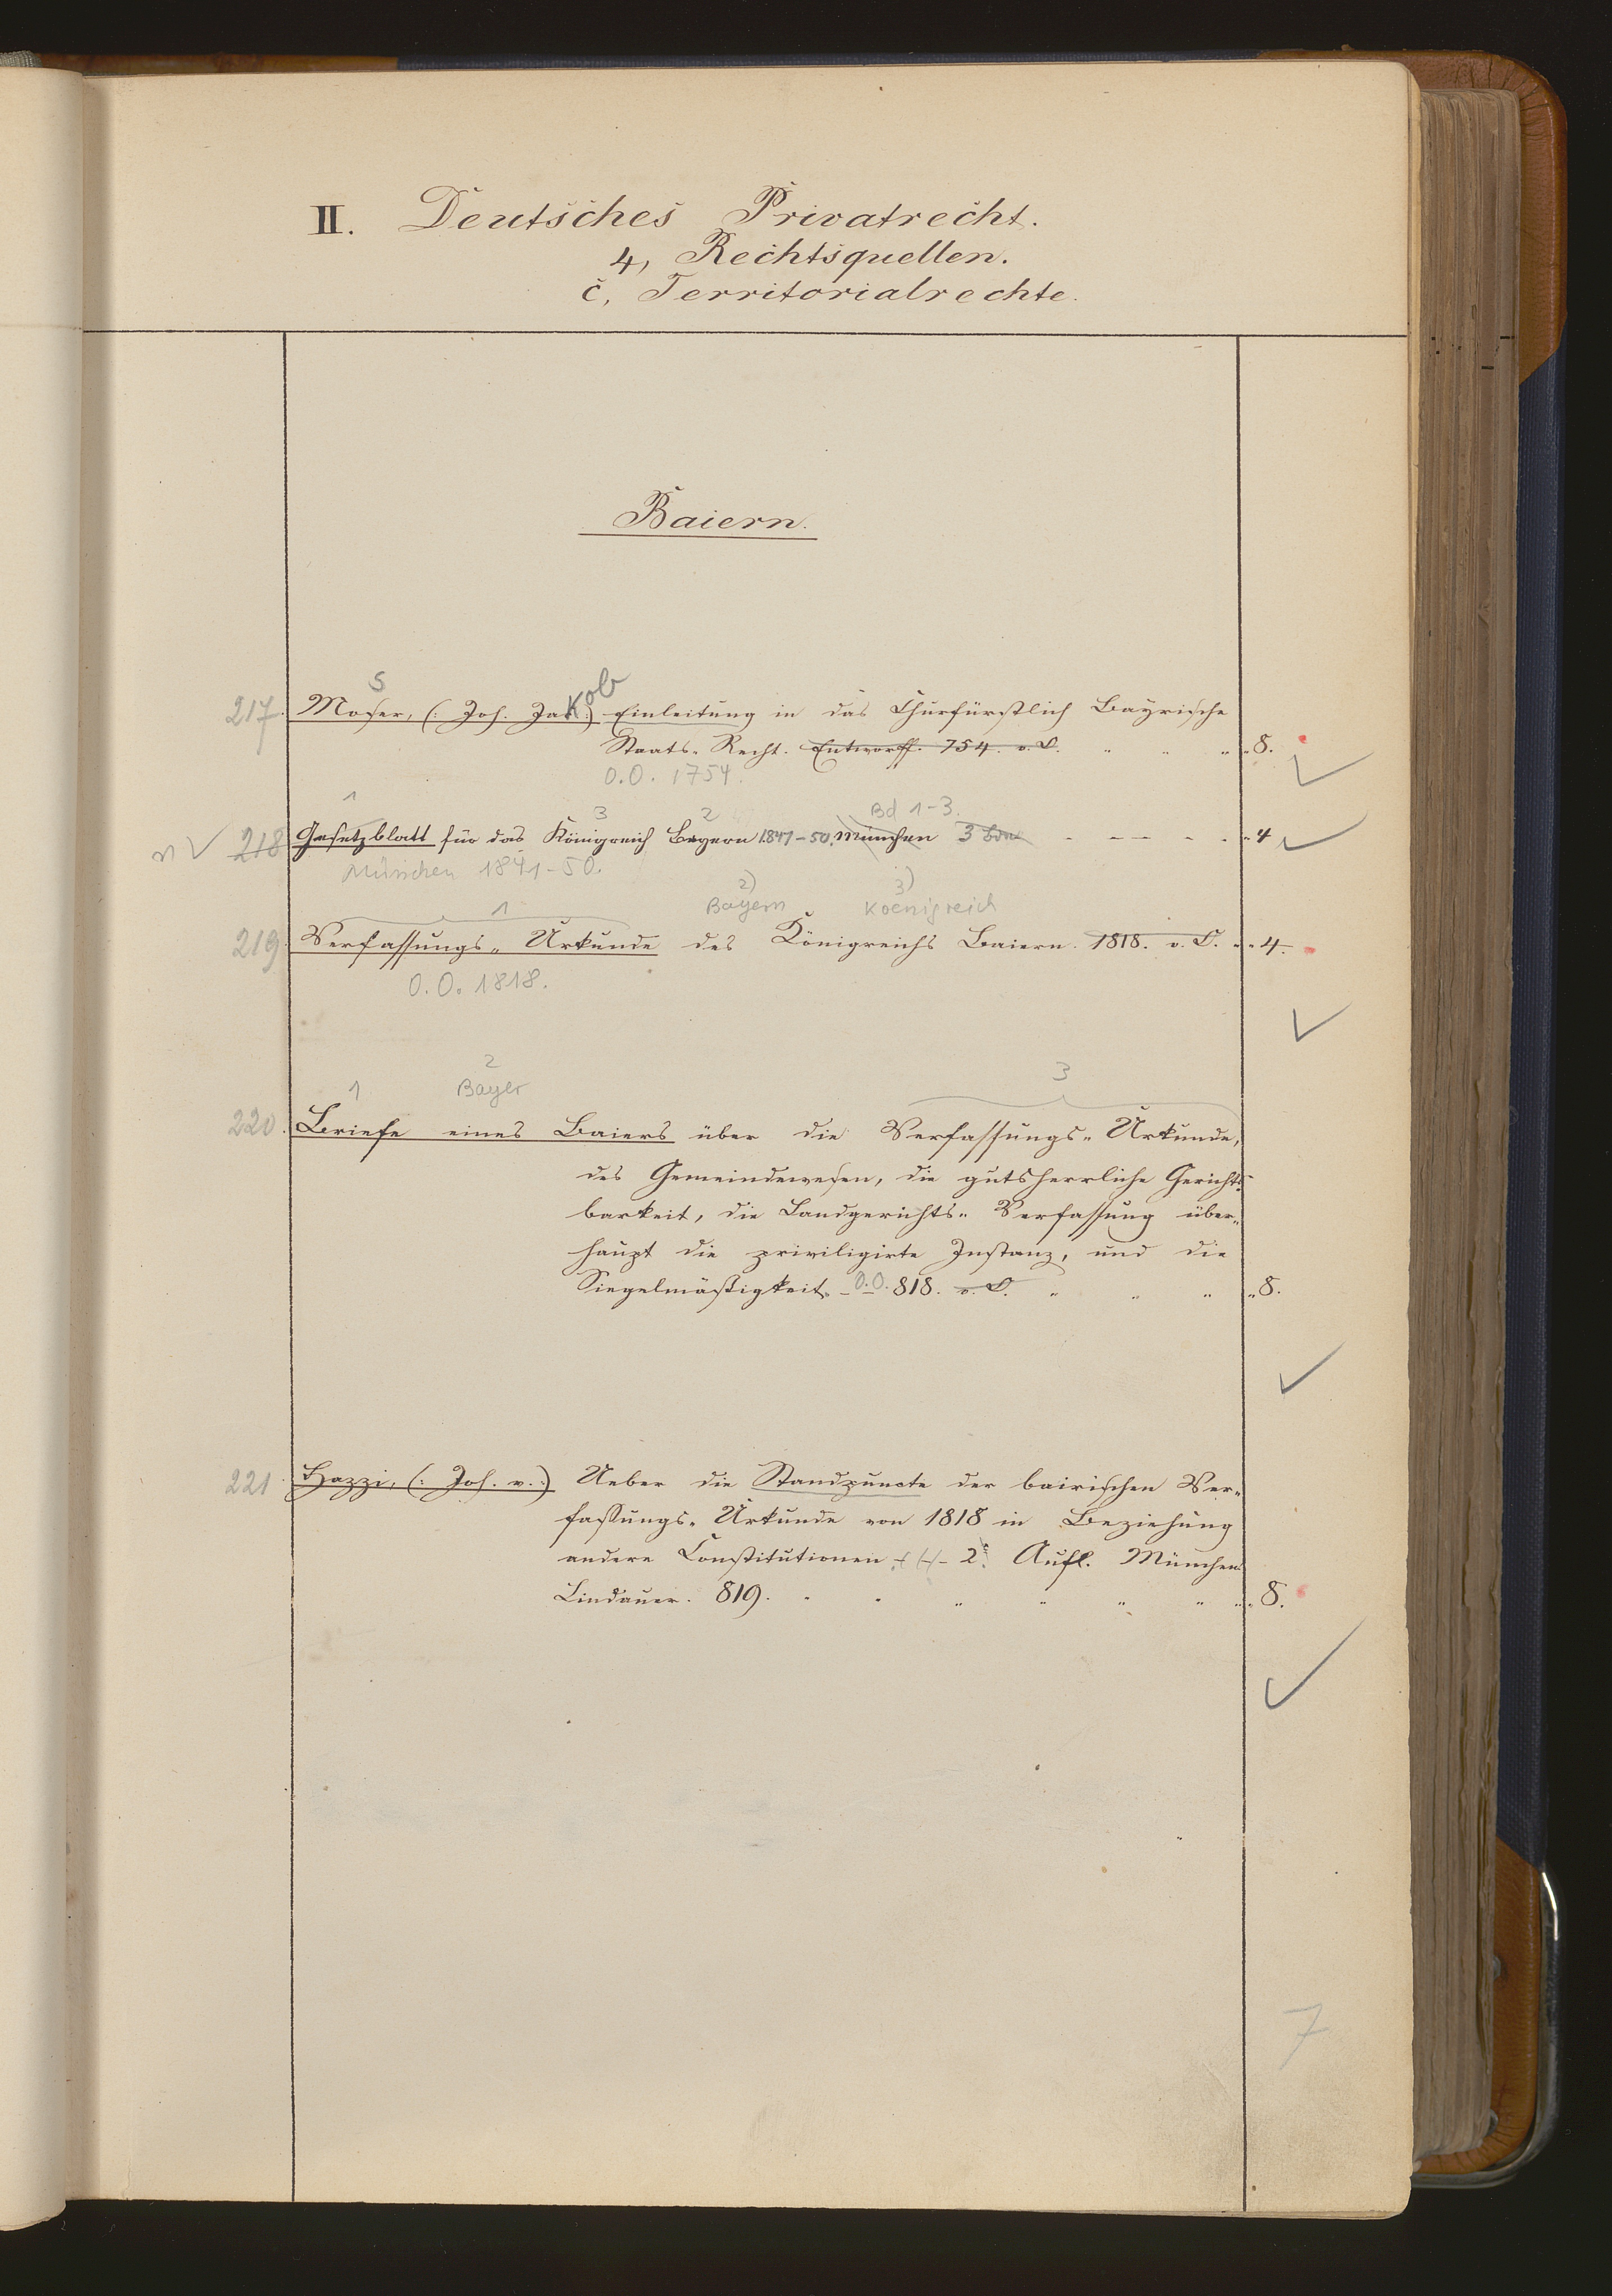 II. Deutsches Privatrecht.
4, Rechtsquellen.
c, Territorialrechte.
Baiern.
s kob
217. Moser, (: Joh. Jak :) Einleitung in das Churfürstlich Bayrische
Staats- Recht. Entworff. 754. o. O. " " " " 8.
O.O. 1754.
1 3 2 Bd 1-3.
n ✓ 218 Gesetzblatt für das Königreich Bayern 1841-50. München 3 bde - - - - - " 4 ✓
München 1841-50.
1 2) Bayern 3) Koenigreich
219. Verfassungs- Urkunde des Königreichs Baiern. 1818. o. O. " " 4.
O.O. 1818.
✓
1 2 Bayer 3
220. Briefe eines Baiers über die Verfassungs- Urkunde,
des Gemeindewesen, die gutsherrliche Gerichts-
barkeit, die Landgerichts- Verfassung über-
haupt die priviligirte Instanz, und die
Siegelmäßigkeit. - O.O. 818. o. O. " " " " 8.
✓
221. Hazzi, (: Jos. v. :) Ueber die Standpuncte der bairischen Ver-
fassungs- Urkunde von 1818 in Beziehung
andere Constitutionen 2e Aufl. München.
Lindauer. 819. " " " " " " 8.
✓
7